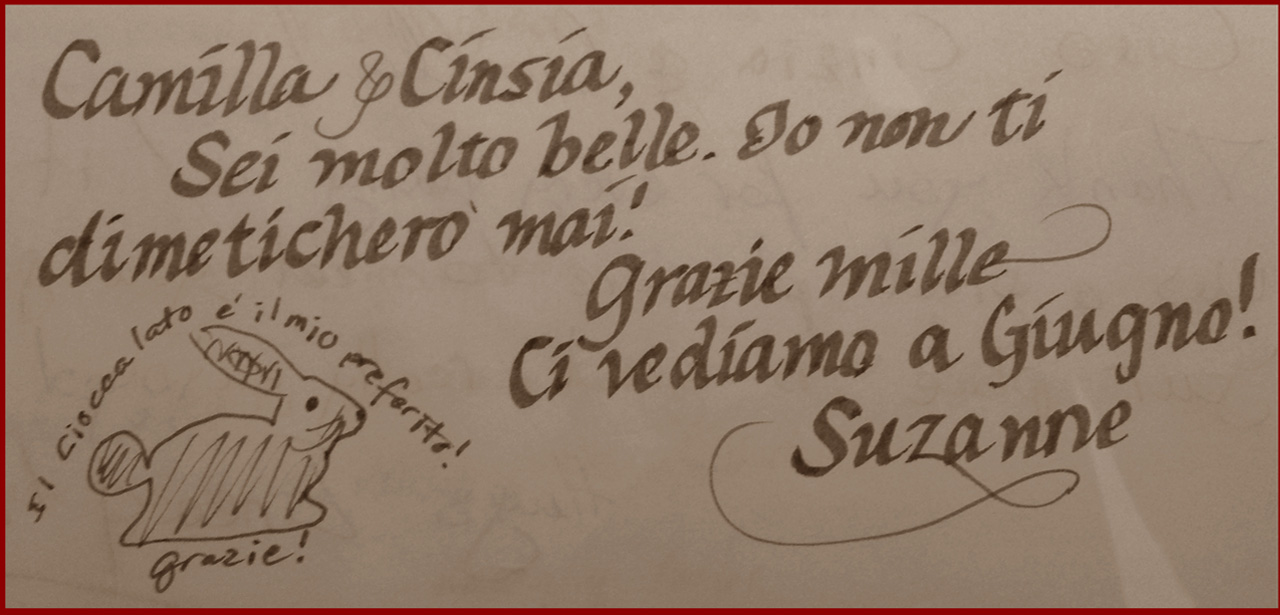 Camilla & Cinsia,
Sei molto belle. Io non ti
dimetichero` mai!
Grazie mille
Ci vediamo a Giugno!
Suzanne
Il cioccalato é il mio preferito!
grazie!